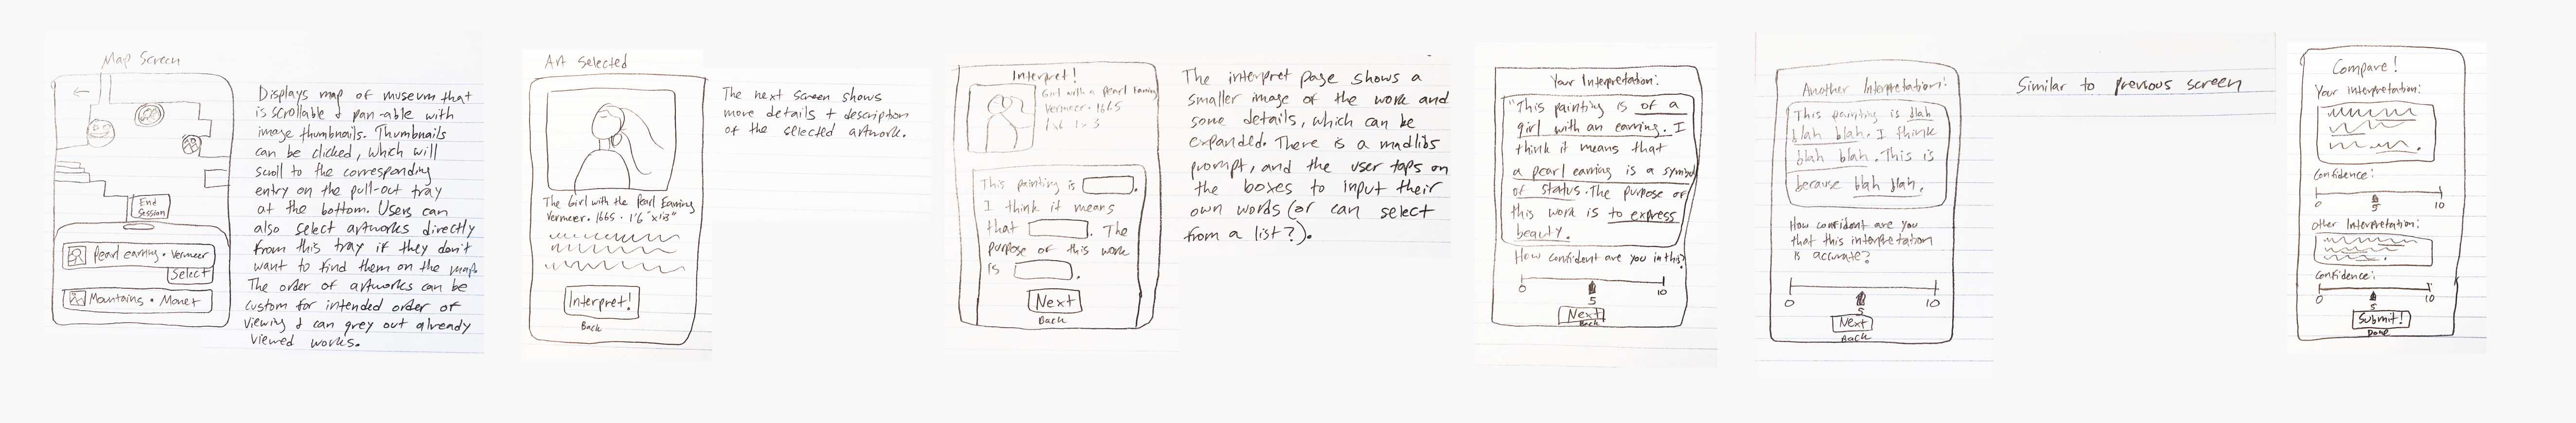 Map Screen
End
Session
Pearl earring • Vermeer
Select
Mountains • Monet
Displays map of museum that
is scrollable & pan-able with
image thumbnails. Thumbnails
can be clicked, which will
scroll to the corresponding
entry on the pull-out tray
at the bottom. Users can
also select artworks directly
from this tray if they don't
want to find them on the map.
The order of artworks can be
custom for intended order of
viewing & can grey out already
viewed works.
Art Selected
The Girl with the Pearl Earring
Vermeer. 1665 • 1'6"x1'3"
Interpret!
Back
The next screen shows
more details + description
of the selected artwork.
Interpret!
Girl with a pearl Earring
Vermeer • 1665
This painting is
I think it means
that . The
purpose of this work
is .
Next
Back
The interpret page shows a
smaller image of the work and
some details, which can be
expanded. There is a madlibs
prompt, and the user taps on
the boxes to input their
own words (or can select
from a list?).
Your Interpretation:
"This painting is of a
girl with an earring. I
think it means that
a pearl earring is a symbol
of status. The purpose of
this work is to express
beauty.
How confident are you in this?
0 5 10
Next
Back
Another Interpretation:
This painting is blah
blah blah. I think
blah blah. This is
because blah blah.
How confident are you
that this interpretation
is accurate?
0 5 10
Next
Back
Similar to previous screen
Compare!
Your interpretation:
Confidence:
0 5 10
Other Interpretation:
Confidence:
0 5 10
Submit!
Done